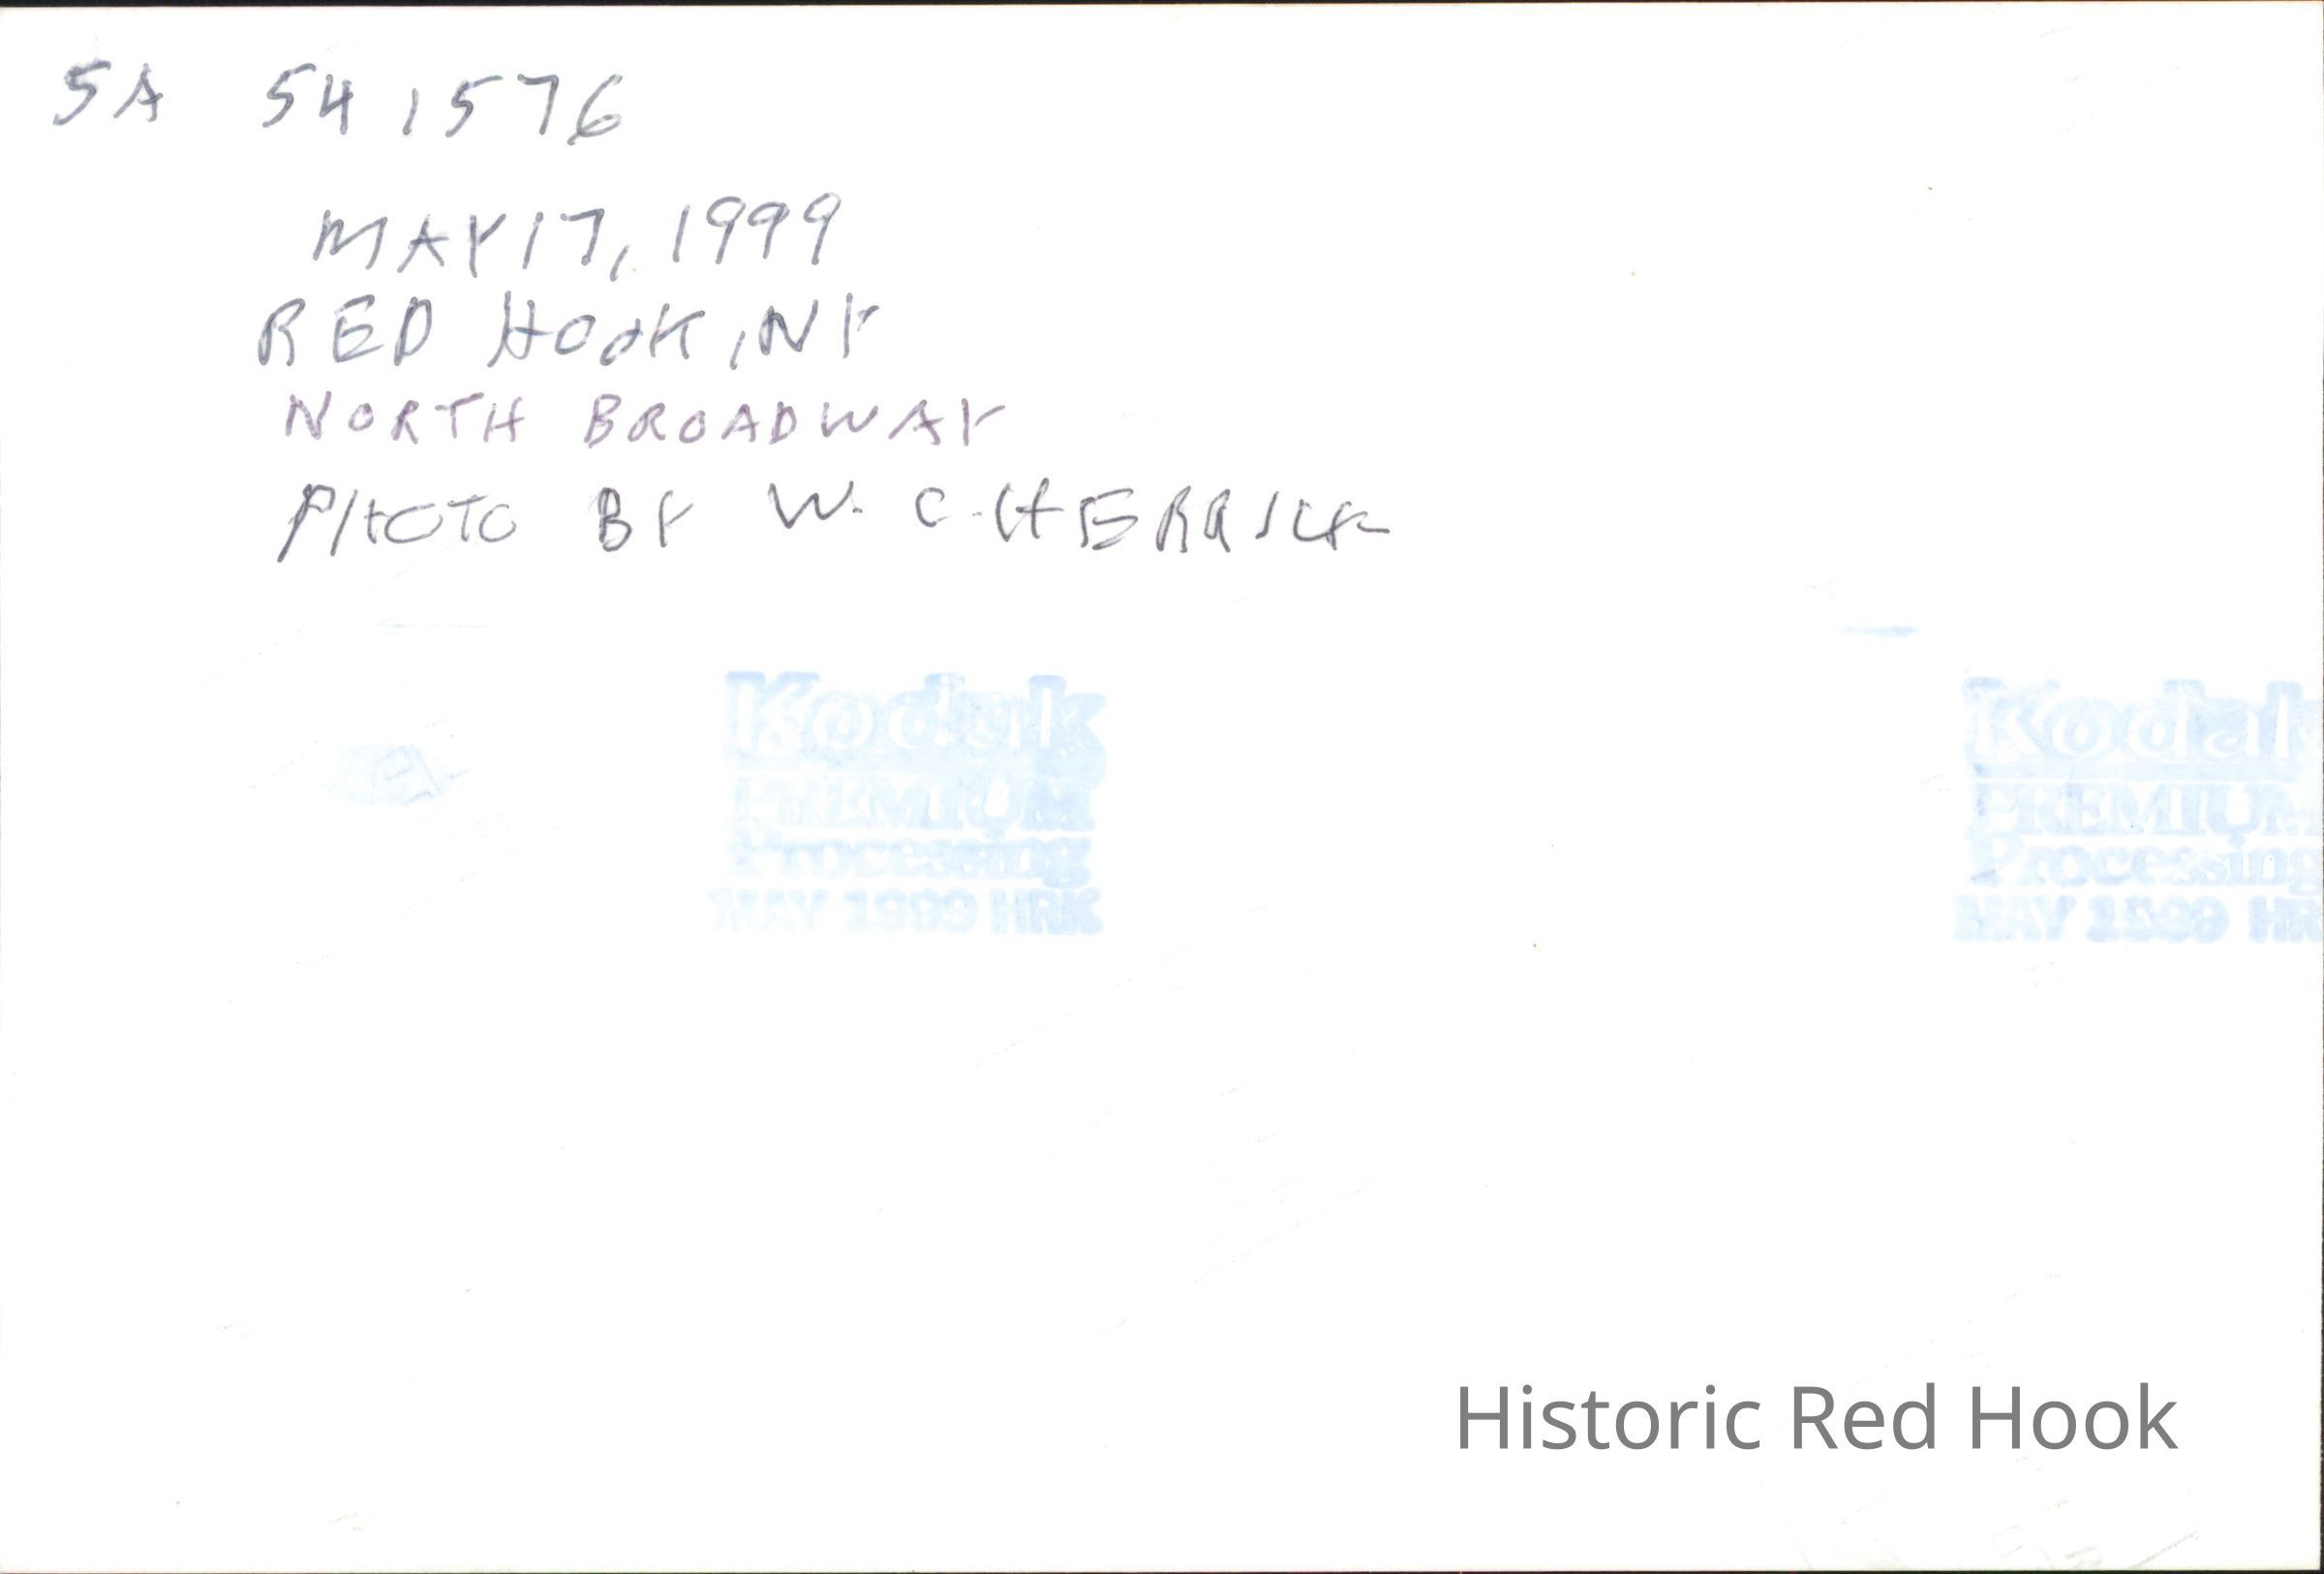 5A 541576
MAY 17, 1999
RED HOOK, NY
NORTH BROADWAY
PHOTO BY W. C. HERRICK
Kodak
PREMIUM
Processing
MAY 1999 HRK
Kodak
PREMIUM
Processing
MAY 1999 HR
Historic Red Hook